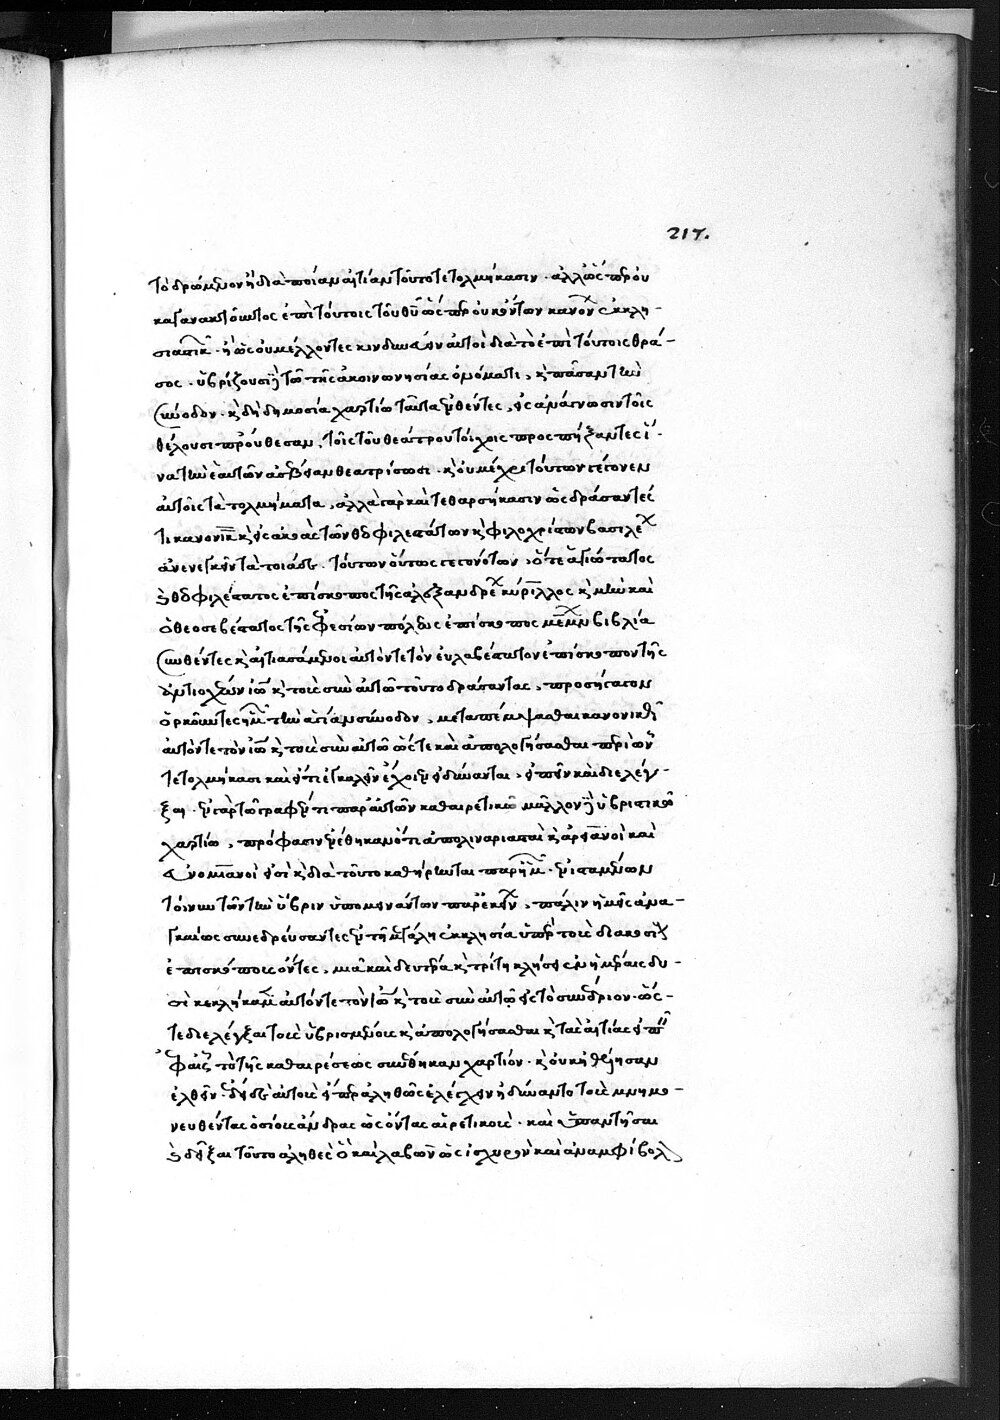 217.
τὸ δρώμενον ἢ διὰ ποίαν αἰτίαν τοῦτο τετολμήκασιν · ἀλλ' ὡς πρου
καταγανακτοῦντος ἐπὶ τούτοις τοῦ θυ ὡς προυκόντων κανόν ἐκκλη-
σιαστικ · ἢ ὡς οὐ μέλλοντες κινδυνεύειν αὐτοὶ διὰ τὸ ἐπὶ τούτοις θρά-
σος · ὑβρίζουσι τῶ τῆς ἀκοινωνησίας ὀνόματι, κ πᾶσαν τὴν
σύνοδον · κ δὴ δημοσία χαρτίω ταῦτα ἐνθέντες, εἰς ἀνάγνωσιν τοῖς
θέλουσι προύθεσαν, τοῖς τοῦ θεάτρου τοίχοις προσπήξαντες ἵ-
να τὴν ἑαυτῶν ἀσέβειαν θεατρίσωσι · κ οὐ μέχρι τούτων γέγονεν
αὐτοῖς τὰ τολμήματα, ἀλλὰ γὰρ καὶ τεθαρσήκασιν ὡς δράσαντές
τι κανονικ κ εἰς ἀκοὰς τῶν θεοφιλεστάτων κ φιλοχρίστων βασιλέ
ἀνενεγκεῖν τὰ τοιάδε · τούτων οὕτως γεγονότων, ὅ τε ἁγιώτατος
κ θεοφιλέστατος ἐπίσκοπος τῆς ἀλεξανδρε κύριλλος κ μὴν καὶ
ὁ θεοσεβέστατος τῆς ἐφεσίων πόλεως ἐπίσκοπος μέμνων βιβλία
συνθέντες κ αἰτιασάμενοι αὐτόν τε τὸν εὐλαβέστατον ἐπίσκοπον τῆς
ἀντιοχέων ἰω κ τοὺς σὺν αὐτῶ τοῦτο δράσαντας, προσήγαγον
ὁρκοῦντες ἡμ τὴν ἁγίαν σύνοδον, μεταπέμψασθαι κανονικῶ
αὐτόν τε τὸν ἰω κ τοὺς σὺν αὐτῶ ὥς τε καὶ ἀπολογήσασθαι περὶ ὧν
τετολμήκασι καὶ εἴ τι ἐγκαλεῖν ἔχοιεν δύνανται, εἰπεῖν καὶ διελέγ-
ξαι · ἐν γὰρ τῶ γραφέντι παρ' αὐτῶν καθαιρετικῶ μᾶλλον ὑβριστικῶ
χαρτίω, πρόφασιν ἐνέθηκαν ὅτι ἀπολιναριασταὶ κ ἀρειανοὶ καὶ
εὐνομιανοί εἰσὶ κ διὰ τοῦτο καθήρηνται παρ' ἡμ · ἐνισταμένων
τοίνυν τῶν τὴν ὕβριν ὑπομεινάντων παρ' ἐκείν, πάλιν ἡμεῖς ἀνα-
γκαίως συνεδρεύσαντες ἐν τῆ μεγάλη ἐκκλησία ὑπὲρ τοὺς διακοσί
ἐπισκόπους ὄντες, μιᾶ καὶ δευτέρα κ τρίτη κλήσει ἐν ἡμέραις δυ-
σὶ κεκλήκαμ αὐτόν τε τὸν ἰω κ τοὺς σὺν αὐτῶ εἰς τὸ συνέδριον · ὥς-
τε διελέγξαι τοὺς ὑβρισμένους κ ἀπολογήσασθαι κ τὰς αἰτίας εἰπ
ἐφ' αἷς τὸ τῆς καθαιρέσεως συνέθηκαν χαρτίον · κ οὐκ ἠθέλησαν
ἐλθεῖν · ἔδει δὲ αὐτοὺς εἴπερ ἀληθῶς ἐλέγχειν ἠδύναντο τοὺς μνημο-
νευθέντας ὁσίους ἄνδρας ὡς ὄντας αἱρετικοὺς · καὶ ἀπαντῆσαι
κ δεῖξαι τοῦτο ἀληθὲς ὃ καὶ λαβὼν ὡς ἰσχυρὸν καὶ ἀναμφίβολ